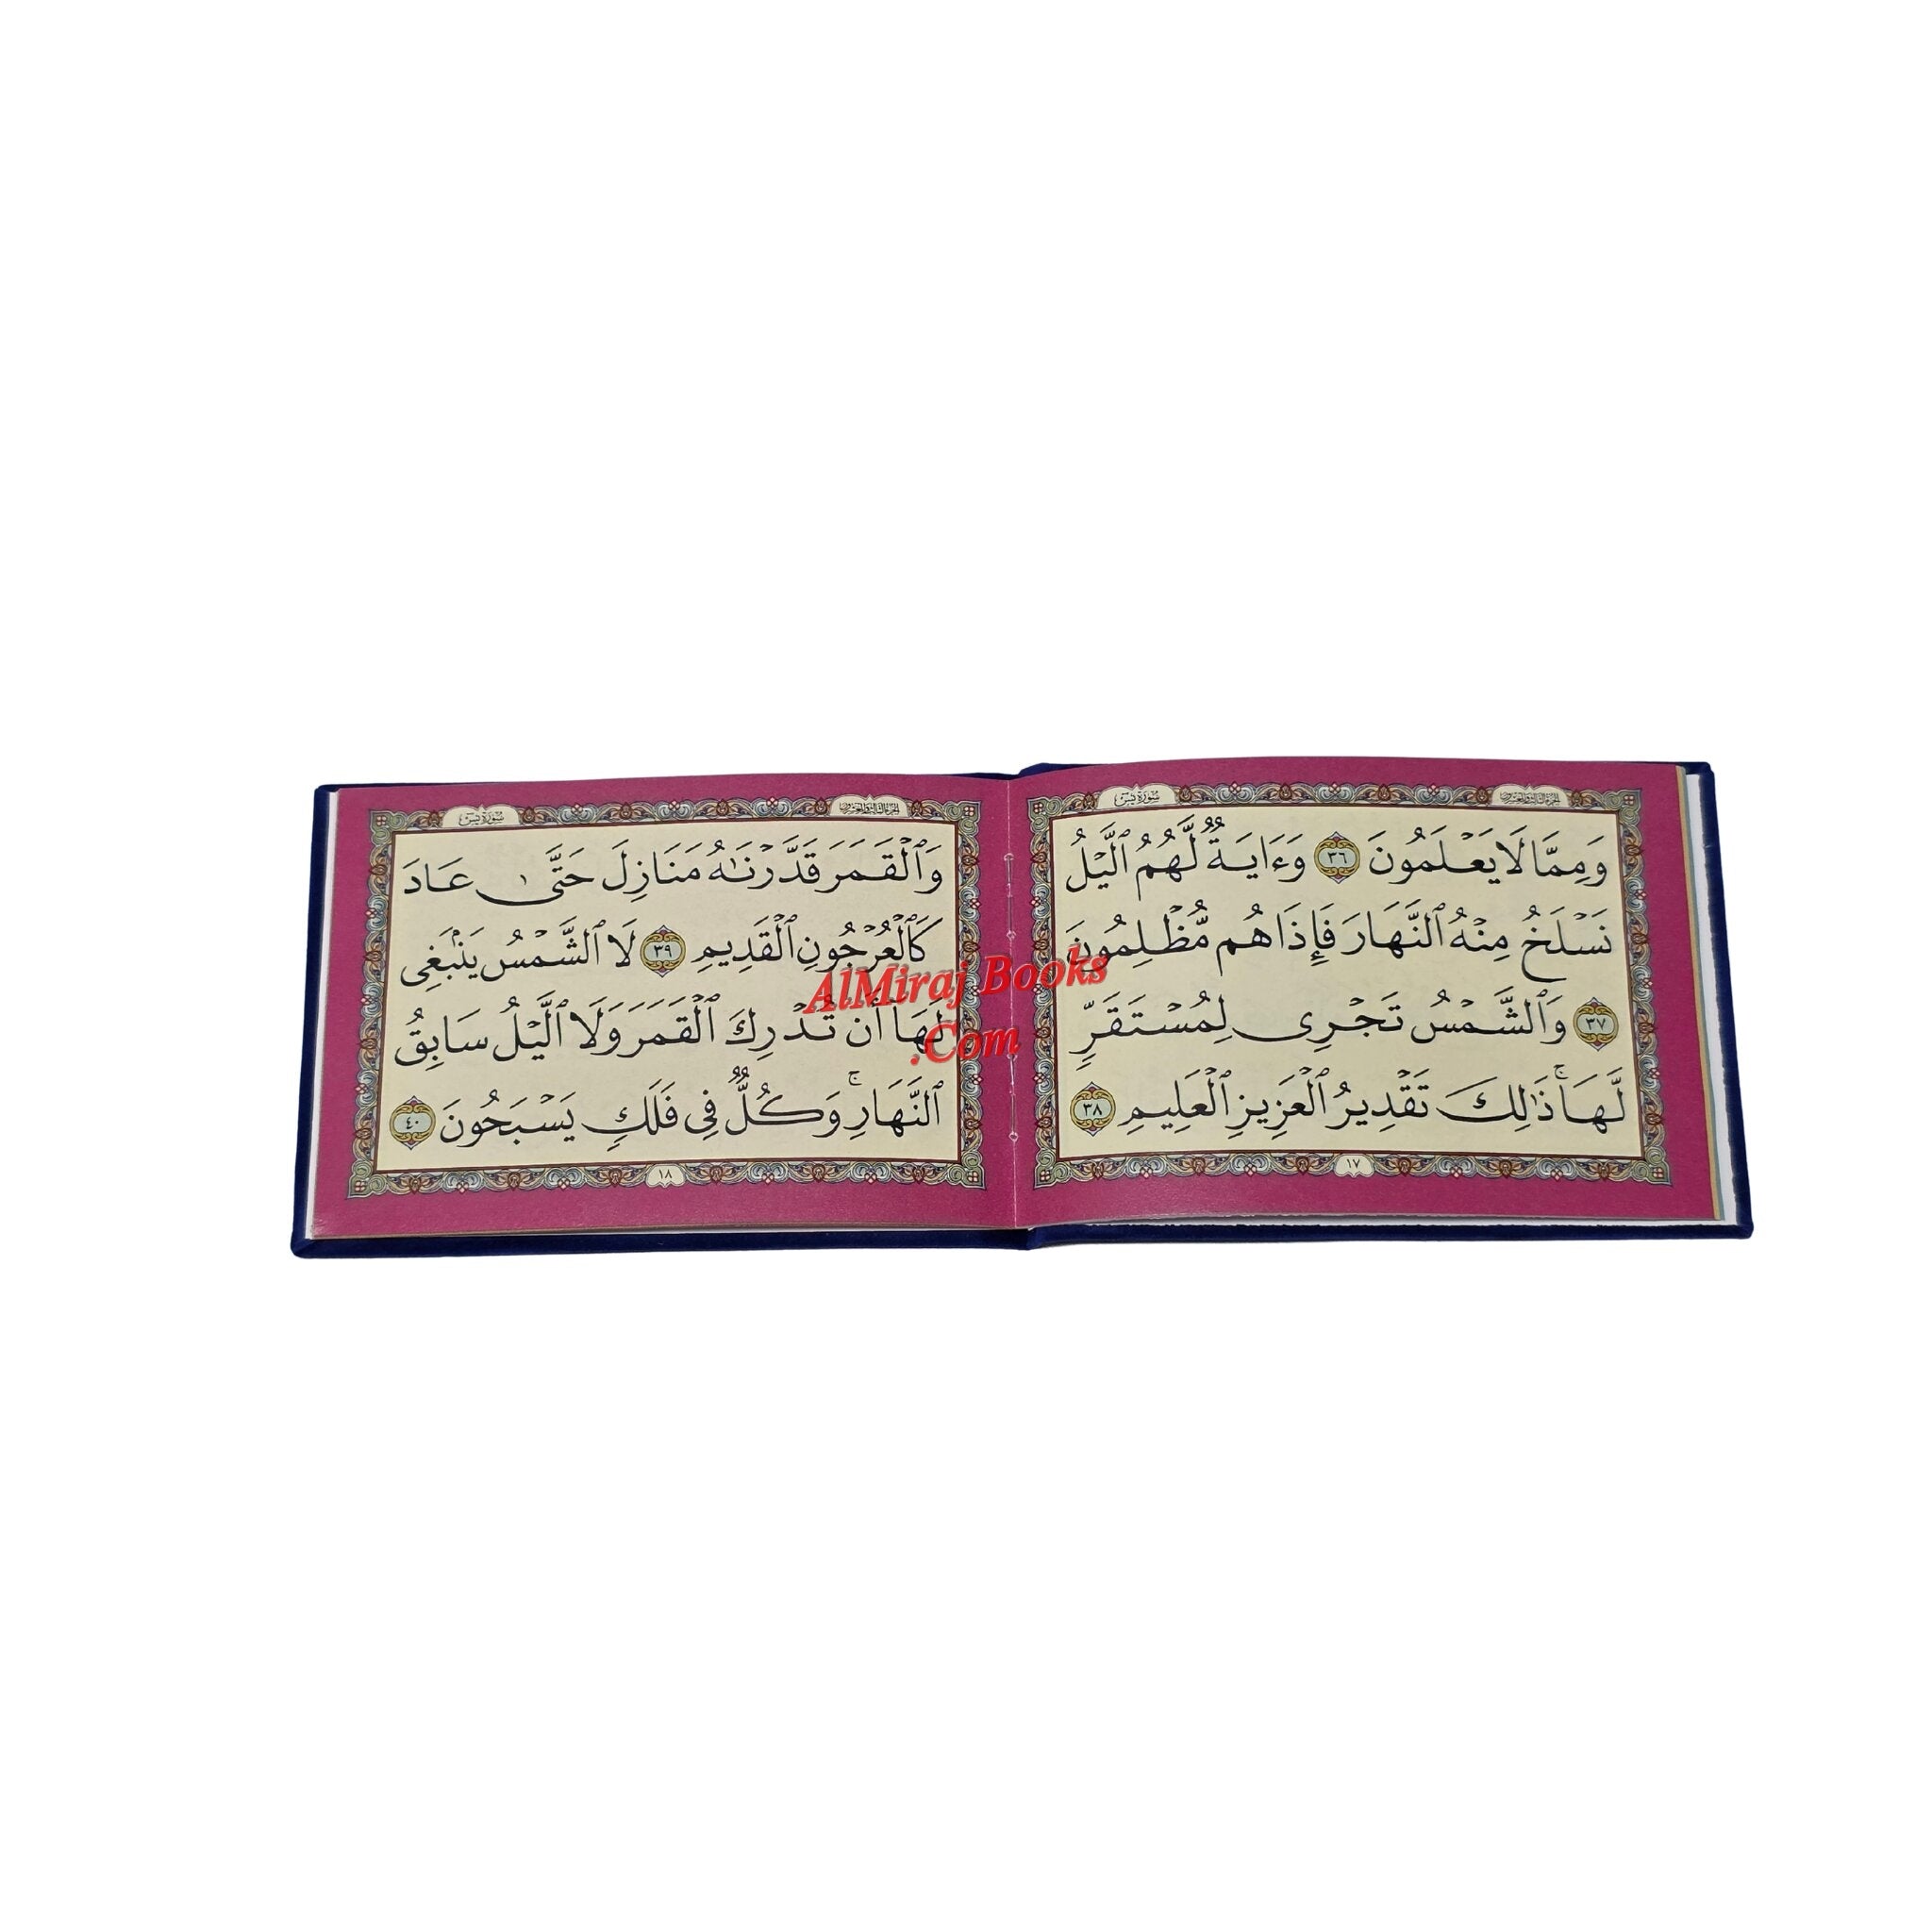 الجزء الثالث والعشرون
سُورَةُ يسٓ
وَمِمَّا لَا يَعْلَمُونَ ٣٦ وَءَايَةٌ لَّهُمُ ٱلَّيْلُ
نَسْلَخُ مِنْهُ ٱلنَّهَارَ فَإِذَا هُم مُّظْلِمُونَ
٣٧ وَٱلشَّمْسُ تَجْرِى لِمُسْتَقَرٍّ
لَّهَا ۚ ذَٰلِكَ تَقْدِيرُ ٱلْعَزِيزِ ٱلْعَلِيمِ ٣٨
١٧
الجزء الثالث والعشرون
سُورَةُ يسٓ
وَٱلْقَمَرَ قَدَّرْنَٰهُ مَنَازِلَ حَتَّىٰ عَادَ
كَٱلْعُرْجُونِ ٱلْقَدِيمِ ٣٩ لَا ٱلشَّمْسُ يَنۢبَغِى
لَهَآ أَن تُدْرِكَ ٱلْقَمَرَ وَلَا ٱلَّيْلُ سَابِقُ
ٱلنَّهَارِ ۚ وَكُلٌّ فِى فَلَكٍ يَسْبَحُونَ ٤٠
١٨
AlMiraj Books
.Com